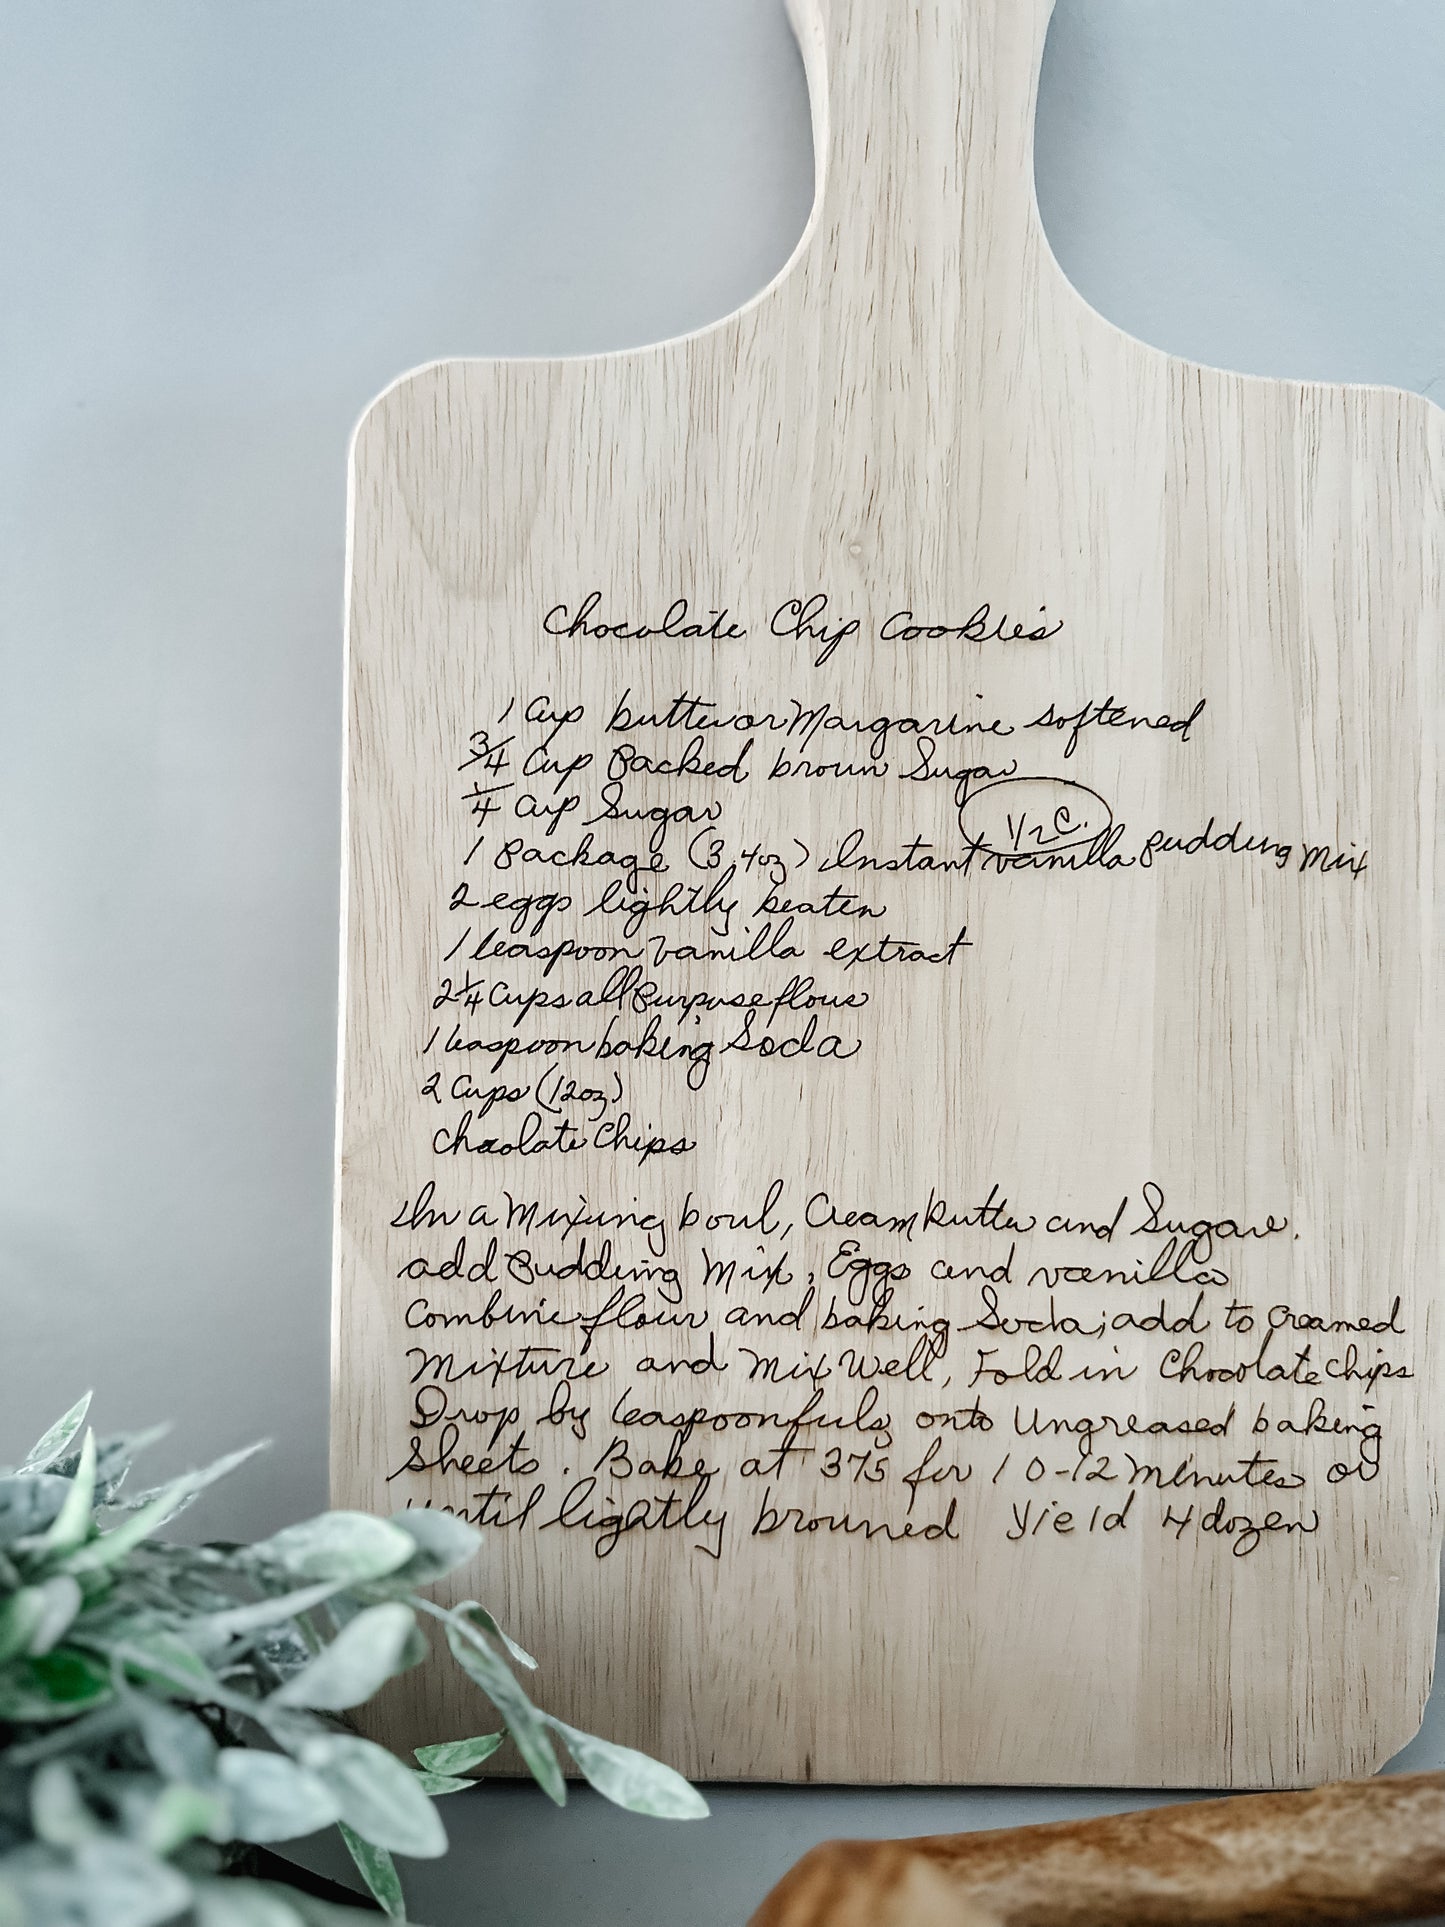 Chocolate Chip Cookies
1 Cup butter or Margarine softened
3/4 Cup Packed brown Sugar
1/4 Cup Sugar
1/2 C.
1 Package (3.4oz) Instant vanilla Pudding Mix
2 eggs lightly beaten
1 teaspoon vanilla extract
2 1/4 Cups all Purpose flour
1 teaspoon baking Soda
2 Cups (12oz)
Chocolate Chips
In a Mixing bowl, Cream butter and Sugar.
add Pudding Mix, Eggs and vanilla
Combine flour and baking Soda; add to Creamed
Mixture and Mix Well, Fold in Chocolate Chips
Drop by teaspoonfuls onto Ungreased baking
Sheets. Bake at 375 for 10-12 Minutes or
until lightly browned Yield 4 dozen